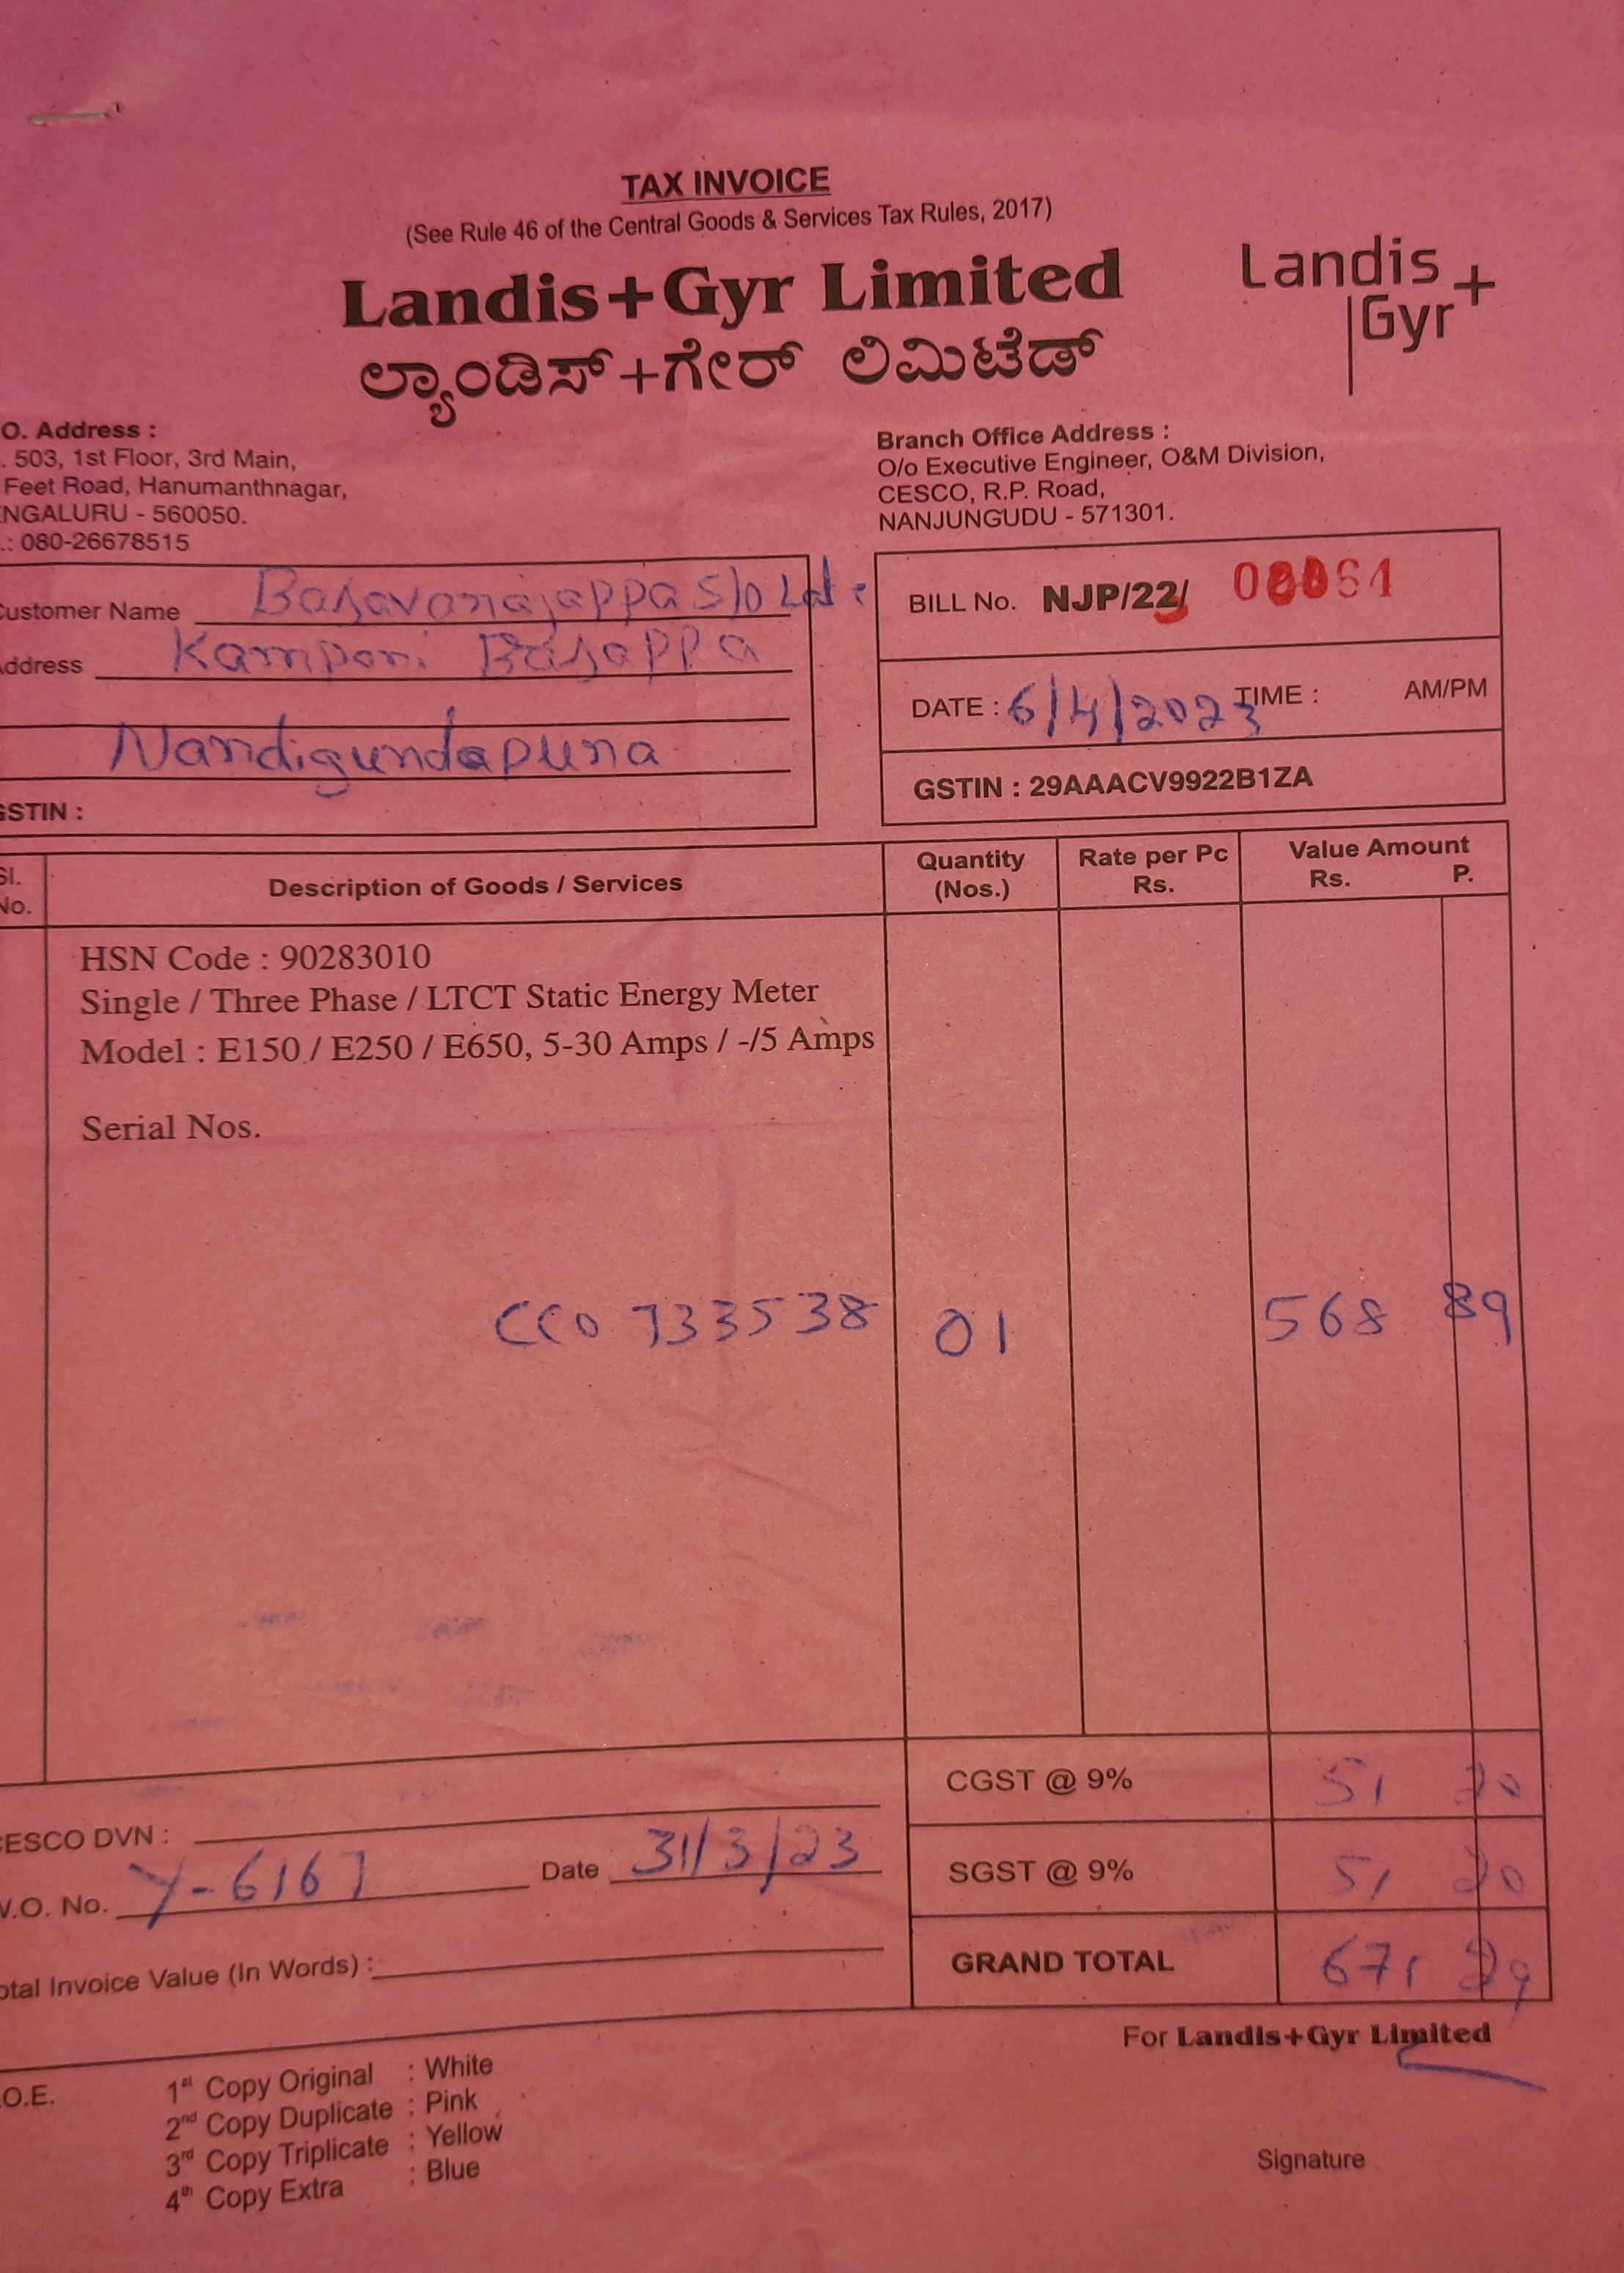 TAX INVOICE
(See Rule 46 of the Central Goods & Services Tax Rules, 2017)
Landis+Gyr Limited
ಲ್ಯಾಂಡಿಸ್+ಗೇರ್ ಲಿಮಿಟೆಡ್
Landis
Gyr+
O. Address :
. 503, 1st Floor, 3rd Main,
Feet Road, Hanumanthnagar,
NGALURU - 560050.
.: 080-26678515
Branch Office Address :
O/o Executive Engineer, O&M Division,
CESCO, R.P. Road,
NANJUNGUDU - 571301.
Customer Name S/o Late
Address Basappa
Nandigundapura
GSTIN :
BILL No. NJP/22/
DATE : 6/4/2023 TIME : AM/PM
GSTIN : 29AAACV9922B1ZA
Sl. No. Description of Goods / Services Quantity (Nos.) Rate per Pc Rs. Value Amount Rs. P.
HSN Code : 90283010
Single / Three Phase / LTCT Static Energy Meter
Model : E150 / E250 / E650, 5-30 Amps / -/5 Amps
Serial Nos.
CC0 733538 01 568 89
CGST @ 9% 51 20
CESCO DVN :
SGST @ 9% 51 20
W.O. No. Y-6167 Date 31/3/23
GRAND TOTAL 671 29
otal Invoice Value (In Words) :
For Landis+Gyr Limited
.O.E.
1st Copy Original : White
2nd Copy Duplicate : Pink
3rd Copy Triplicate : Yellow
4th Copy Extra : Blue
Signature